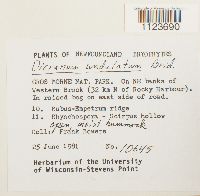 1123690
PLANTS OF NEWFOUNDLAND BRYOPHYTES
Dicranum undulatum Brid.
GROS MORNE NAT. PARK. On NW banks of
Western Brook (32 km N of Rocky Harbour).
In raised bog on east side of road.
10. Rubus-Empetrum ridge
11. Rhynchospora - Scirpus hollow
open moist hummock
Coll: Frank Bowers
25 June 1981 No. 10645
Herbarium of the University
of Wisconsin-Stevens Point